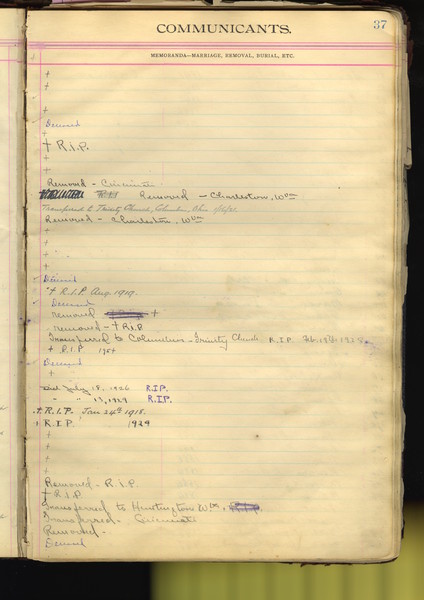 37
COMMUNICANTS.
MEMORANDA—MARRIAGE, REMOVAL, BURIAL, ETC.
+
+
+
Deceased
+
+ R.I.P.
+
+
Removed - Cincinnati
Removed - Charleston, W Va
Transferred to Trinity Church, Columbus, Ohio
Removed - Charleston, W Va
+
+
+
+
Deceased
+ R.I.P. Aug. 1919.
Deceased
removed +
removed - + R.I.P.
Transferred to Columbus - Trinity Church R.I.P. Feb. 1928
+ R.I.P.
Deceased
+
Died July 18, 1926 R.I.P.
" " 13, 1929 R.I.P.
+ R.I.P. Jan 24th 1918.
+ R.I.P. 1929
+
+
+
+
Removed - R.I.P.
+ R.I.P.
Transferred to Huntington W Va.
Transferred - Cincinnati
Removed -
Deceased